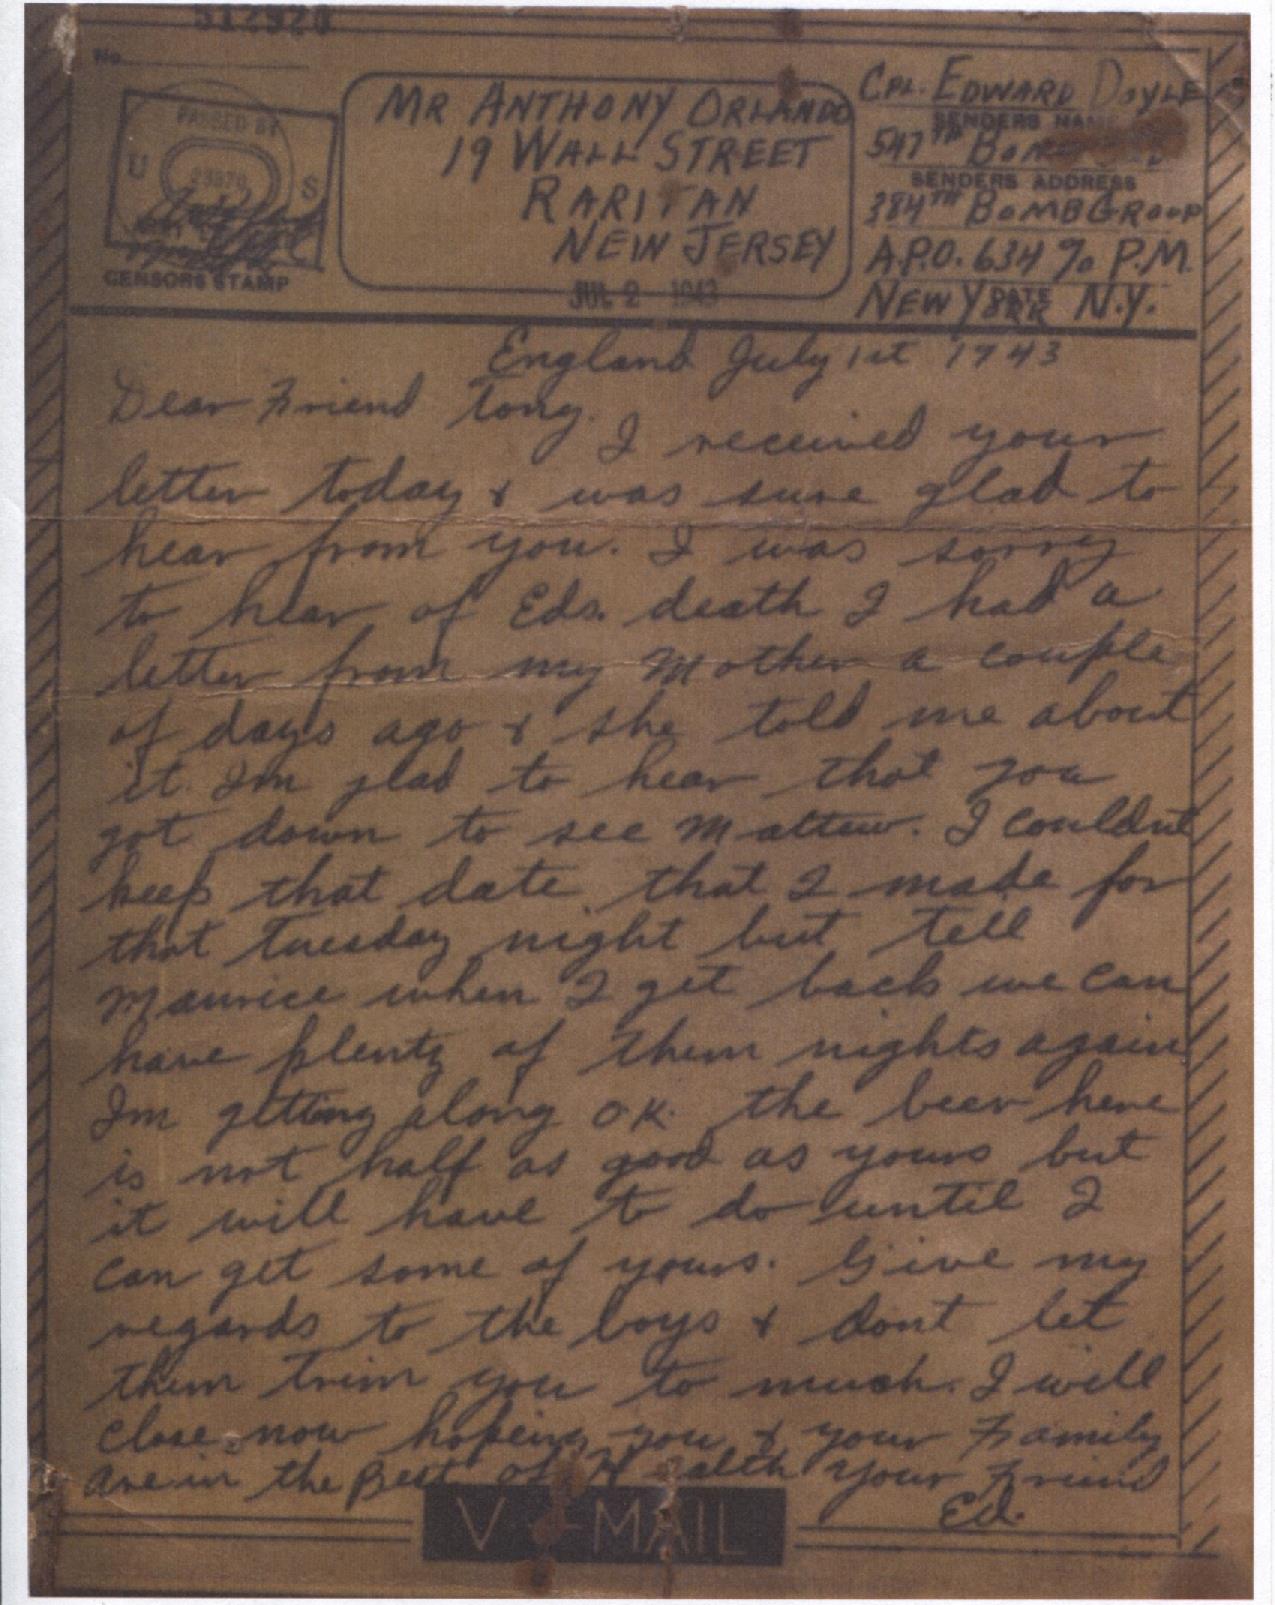 512920
No.
PASSED BY
U S
23870
CENSORS STAMP
MR ANTHONY ORLANDO
19 WALL STREET
RARITAN
NEW JERSEY
JUL 2 1943
CPL. EDWARD DOYLE
SENDERS NAME
547TH BOMB
SENDERS ADDRESS
384TH BOMB GROUP
A.P.O. 634 % P.M.
DATE
NEW YORK N.Y.
England July 1st 1943
Dear Friend Tony.
I received your
letter today & was sure glad to
hear from you. I was sorry
to hear of Eds. death I had a
letter from my Mother a couple
of days ago & she told me about
it. Im glad to hear that you
got down to see Mattew. I couldnt
keep that date that I made for
that Tuesday night but tell
Maurice when I get back we can
have plenty of them nights again
Im getting along O.K. the beer here
is not half as good as yours but
it will have to do until I
can get some of yours. Give my
regards to the boys & dont let
them trim you to much. I will
close now hoping you & your Family
are in the Best of Health Your Friend
Ed.
V-MAIL